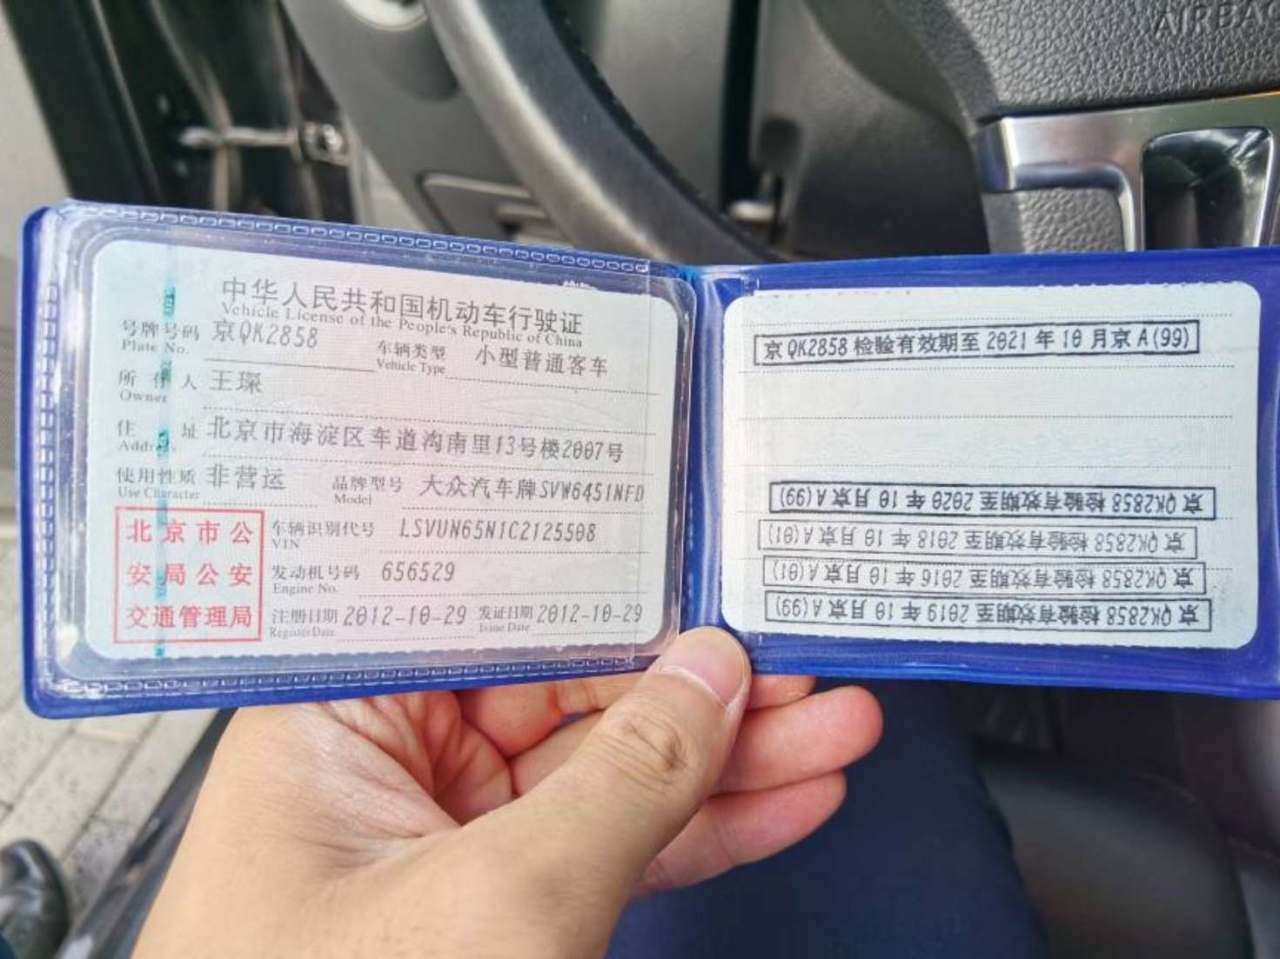 AIRBAG
中华人民共和国机动车行驶证
Vehicle License of the People's Republic of China
号牌号码 京QK2858 车辆类型 小型普通客车
Plate No. Vehicle Type
所有人 王璨
Owner
住址 北京市海淀区车道沟南里13号楼2007号
Address
使用性质 非营运 品牌型号 大众汽车牌SVW6451NFD
Use Character Model
北京市公
安局公安
交通管理局
车辆识别代号 LSVUN65N1C2125508
VIN
发动机号码 656529
Engine No.
注册日期 2012-10-29 发证日期 2012-10-29
Register Date Issue Date
京QK2858检验有效期至2021年10月京A(99)
京QK2858检验有效期至2020年10月京A(99)
京QK2858检验有效期至2018年10月京A(01)
京QK2858检验有效期至2016年10月京A(01)
京QK2858检验有效期至2019年10月京A(99)